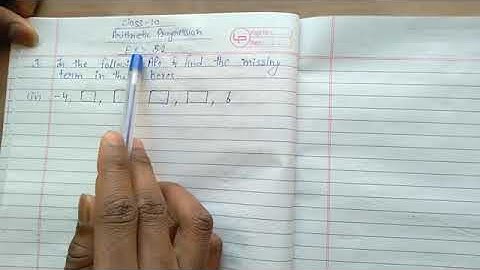 Class-10
Arithmetic Progression
5.2
3. In the following APs find the missing
term in the boxes
(iv) -4, □, □, □, □, 6